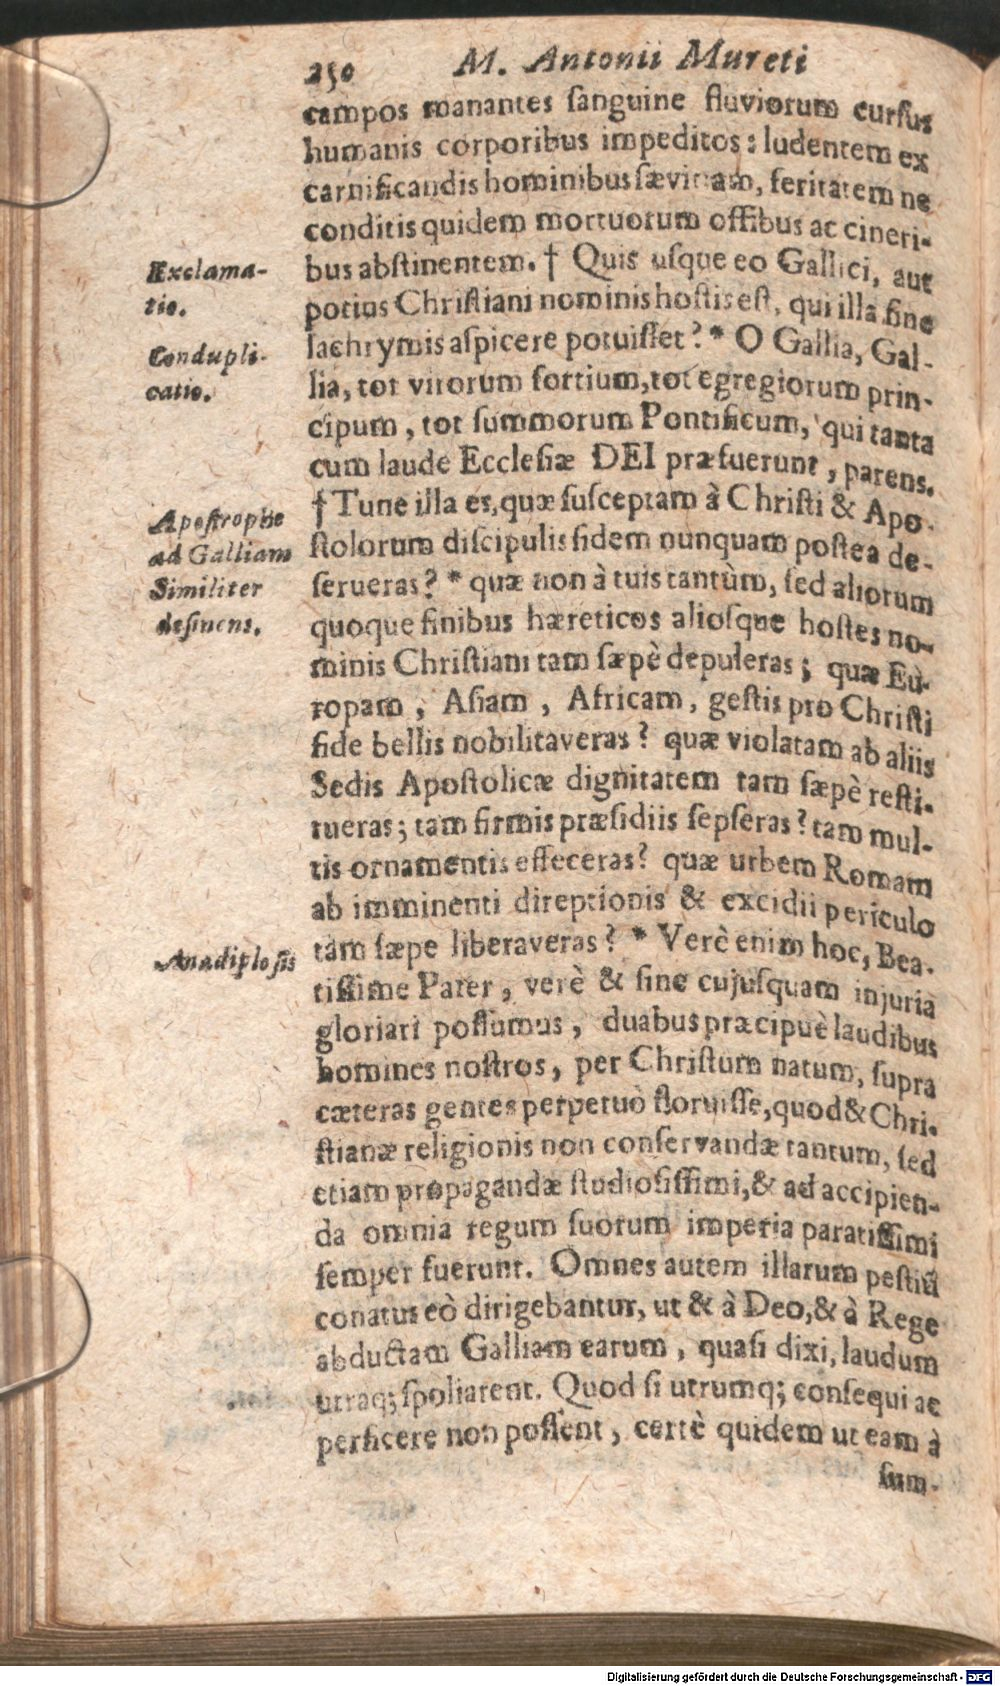 250 M. Antonii Mureti
campos manantes sanguine fluviorum cursus
humanis corporibus impeditos: ludentem ex
carnificandis hominibus sævitiam, feritatem ne
conditis quidem mortuorum ossibus ac cineri-
bus abstinentem. † Quis usque eo Gallici, aut
potius Christiani nominis hostis est, qui illa sine
lachrymis aspicere potuisset? * O Gallia, Gal-
lia, tot virorum fortium, tot egregiorum prin-
cipum, tot summorum Pontificum, qui tanta
cum laude Ecclesiæ DEI præfuerunt, parens.
† Tune illa es, quæ susceptam à Christi & Apo-
stolorum discipulis fidem nunquam postea de-
serueras? * quæ non à tuis tantùm, sed aliorum
quoque finibus hæreticos aliosque hostes no-
minis Christiani tam sæpè depuleras; quæ Eu-
ropam, Asiam, Africam, gestis pro Christi
fide bellis nobilitaveras? quæ violatam ab aliis
Sedis Apostolicæ dignitatem tam sæpè resti-
tueras; tam firmis præsidiis sepseras? tam mul-
tis ornamentis effeceras? quæ urbem Romam
ab imminenti direptionis & excidii periculo
tam sæpe liberaveras? * Verè enim hoc, Bea-
tissime Pater, verè & sine cujusquam injuria
gloriari possumus, duabus præcipuè laudibus
homines nostros, per Christum natum, supra
cæteras gentes perpetuò floruisse, quod & Chri-
stianæ religionis non conservandæ tantum, sed
etiam propagandæ studiosissimi, & ad accipien-
da omnia regum suorum imperia paratissimi
semper fuerunt. Omnes autem illarum pestiũ
conatus eò dirigebantur, ut & à Deo, & à Rege
abductam Galliam earum, quasi dixi, laudum
utraq; spoliarent. Quod si utrumq; consequi ac
perficere non possent, certè quidem ut eam à
sum-
Exclama-
tio.
Condupli-
catio.
Apostrophe
ad Galliam
Similiter
desinens.
Anadiplosis
Digitalisierung gefördert durch die Deutsche Forschungsgemeinschaft - DFG